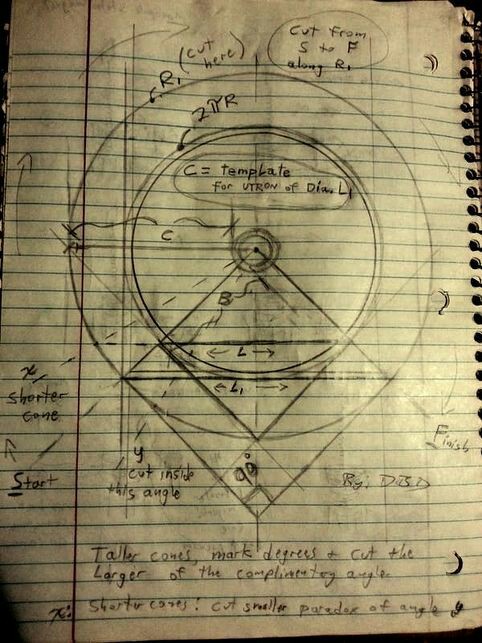 Cut from
S to F
along R1
R1 (cut
here)
2πR
C = template
for UTRON of Dia. L1
C
B
← L →
← L1 →
x
shorter
cone
Start
y
cut inside
this angle
90°
Finish
By: DBD
Taller cones, mark degrees + cut the
Larger of the complimentory angle.
x: Shorter cones: cut smaller paradox of angle y